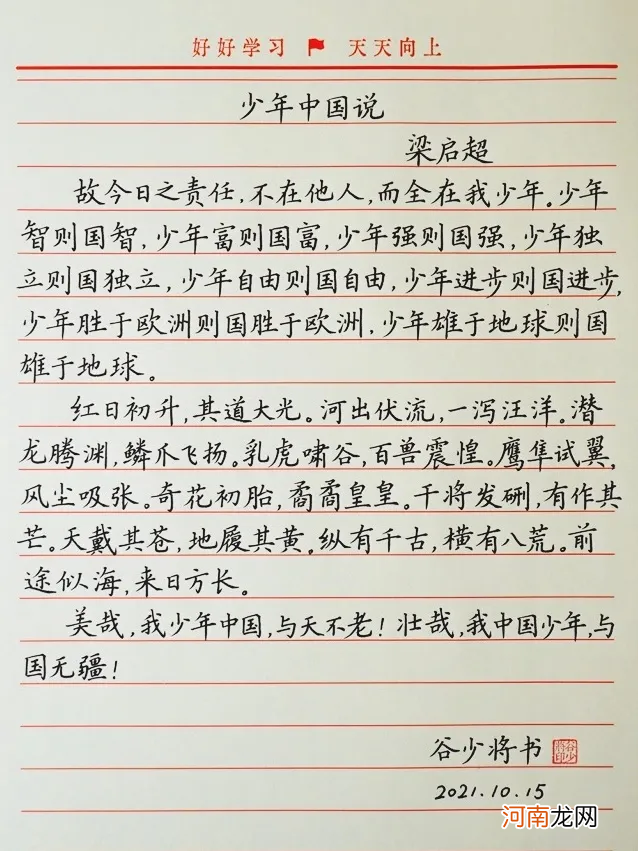 好好学习 天天向上
少年中国说
梁启超
故今日之责任,不在他人,而全在我少年。少年
智则国智,少年富则国富,少年强则国强,少年独
立则国独立,少年自由则国自由,少年进步则国进步,
少年胜于欧洲则国胜于欧洲,少年雄于地球则国
雄于地球。
红日初升,其道大光。河出伏流,一泻汪洋。潜
龙腾渊,鳞爪飞扬。乳虎啸谷,百兽震惶。鹰隼试翼,
风尘吸张。奇花初胎,矞矞皇皇。干将发硎,有作其
芒。天戴其苍,地履其黄。纵有千古,横有八荒。前
途似海,来日方长。
美哉,我少年中国,与天不老!壮哉,我中国少年,与
国无疆!
谷少将书
2021.10.15
河南龙网